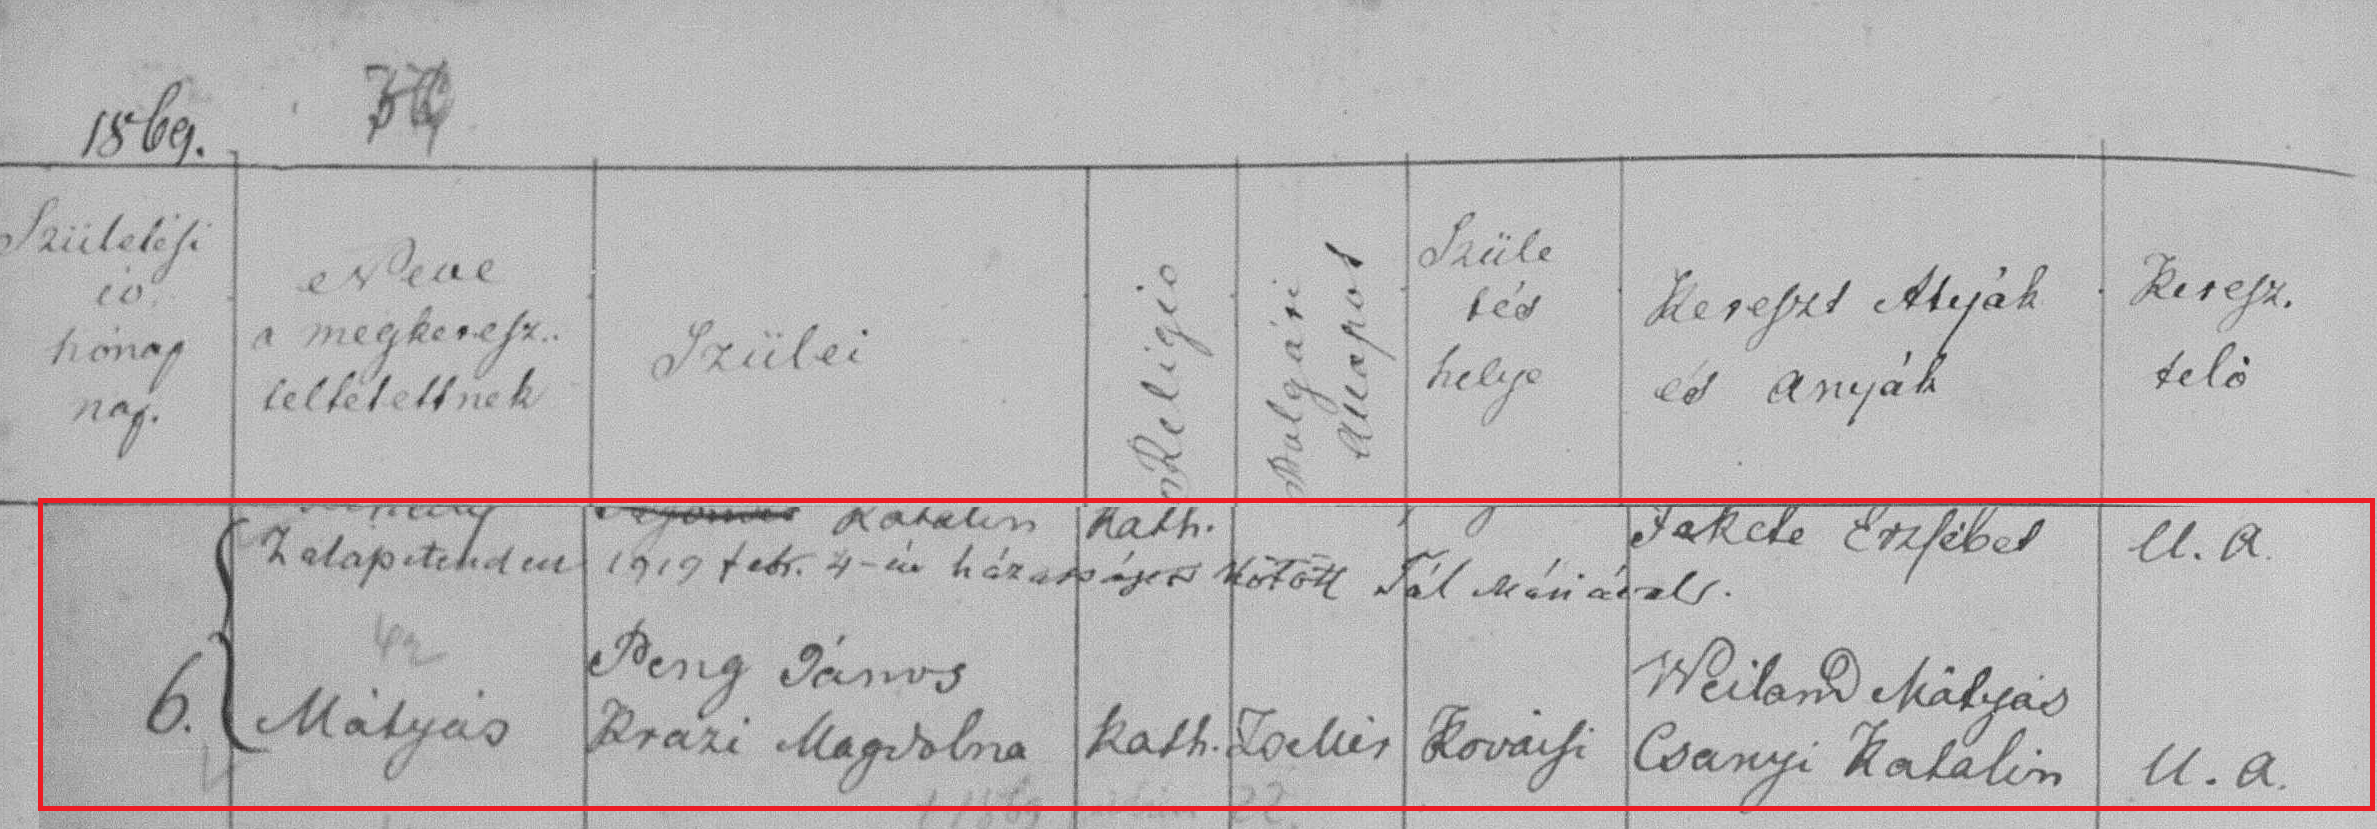 1869.
Születési
év
hónap
nap.
Neve
a megkeresz..
teltetettnek
Szülei
Religio
Polgári
Állapot
Szüle
tés
helye
Kereszt Atyák
és Anyák
Keresz.
telö
Katalin Kath. Fekete Erzsébet U. A.
Zalapetenden 1919 febr. 4-én házasságot kötött Pál Máriával.
42
Peng János Weiland Mátyás
6. Mátyás Krazi Magdolna Kath. Zsellér Kovácsi Csanyi Katalin U. A.
1869 22.